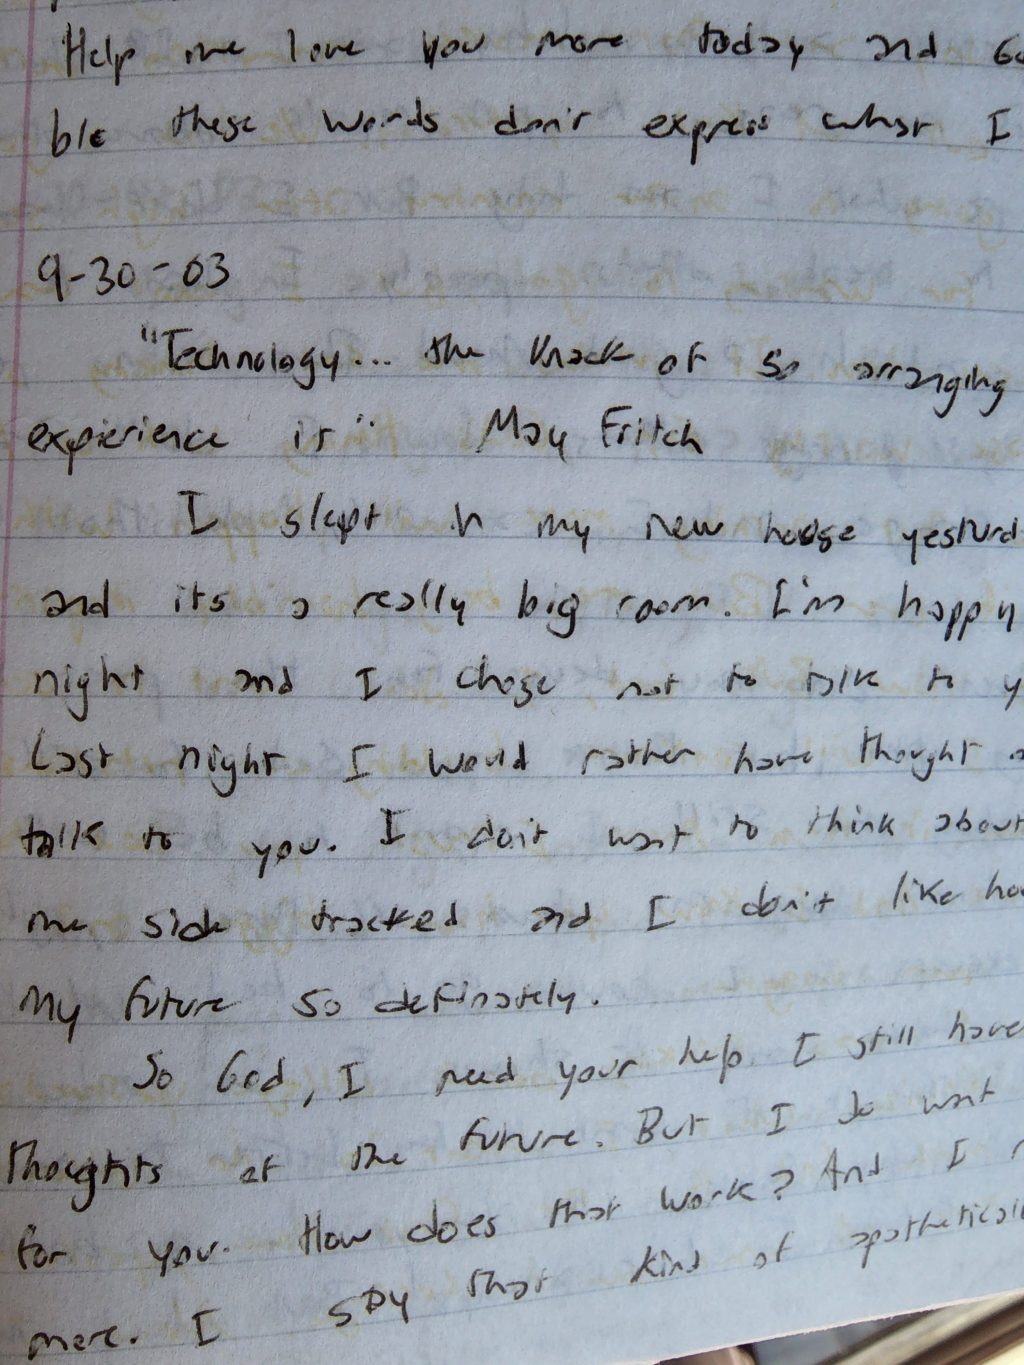 Help me love you more today and
ble these words don't express what I
9-30-03
"Technology... the knack of so arranging
experience it" May Fritch
I slept in my new house yesturd
and its a really big room. I'm happy
night and I chose not to talk to y
Last night I would rather have thought
talk to you. I don't want to think about
me side tracked and I don't like ho
My future so definately.
So God, I need your help. I still have
thoughts of the future. But I do want
for you. How does that work? And I
more. I spy that kind of apathetical